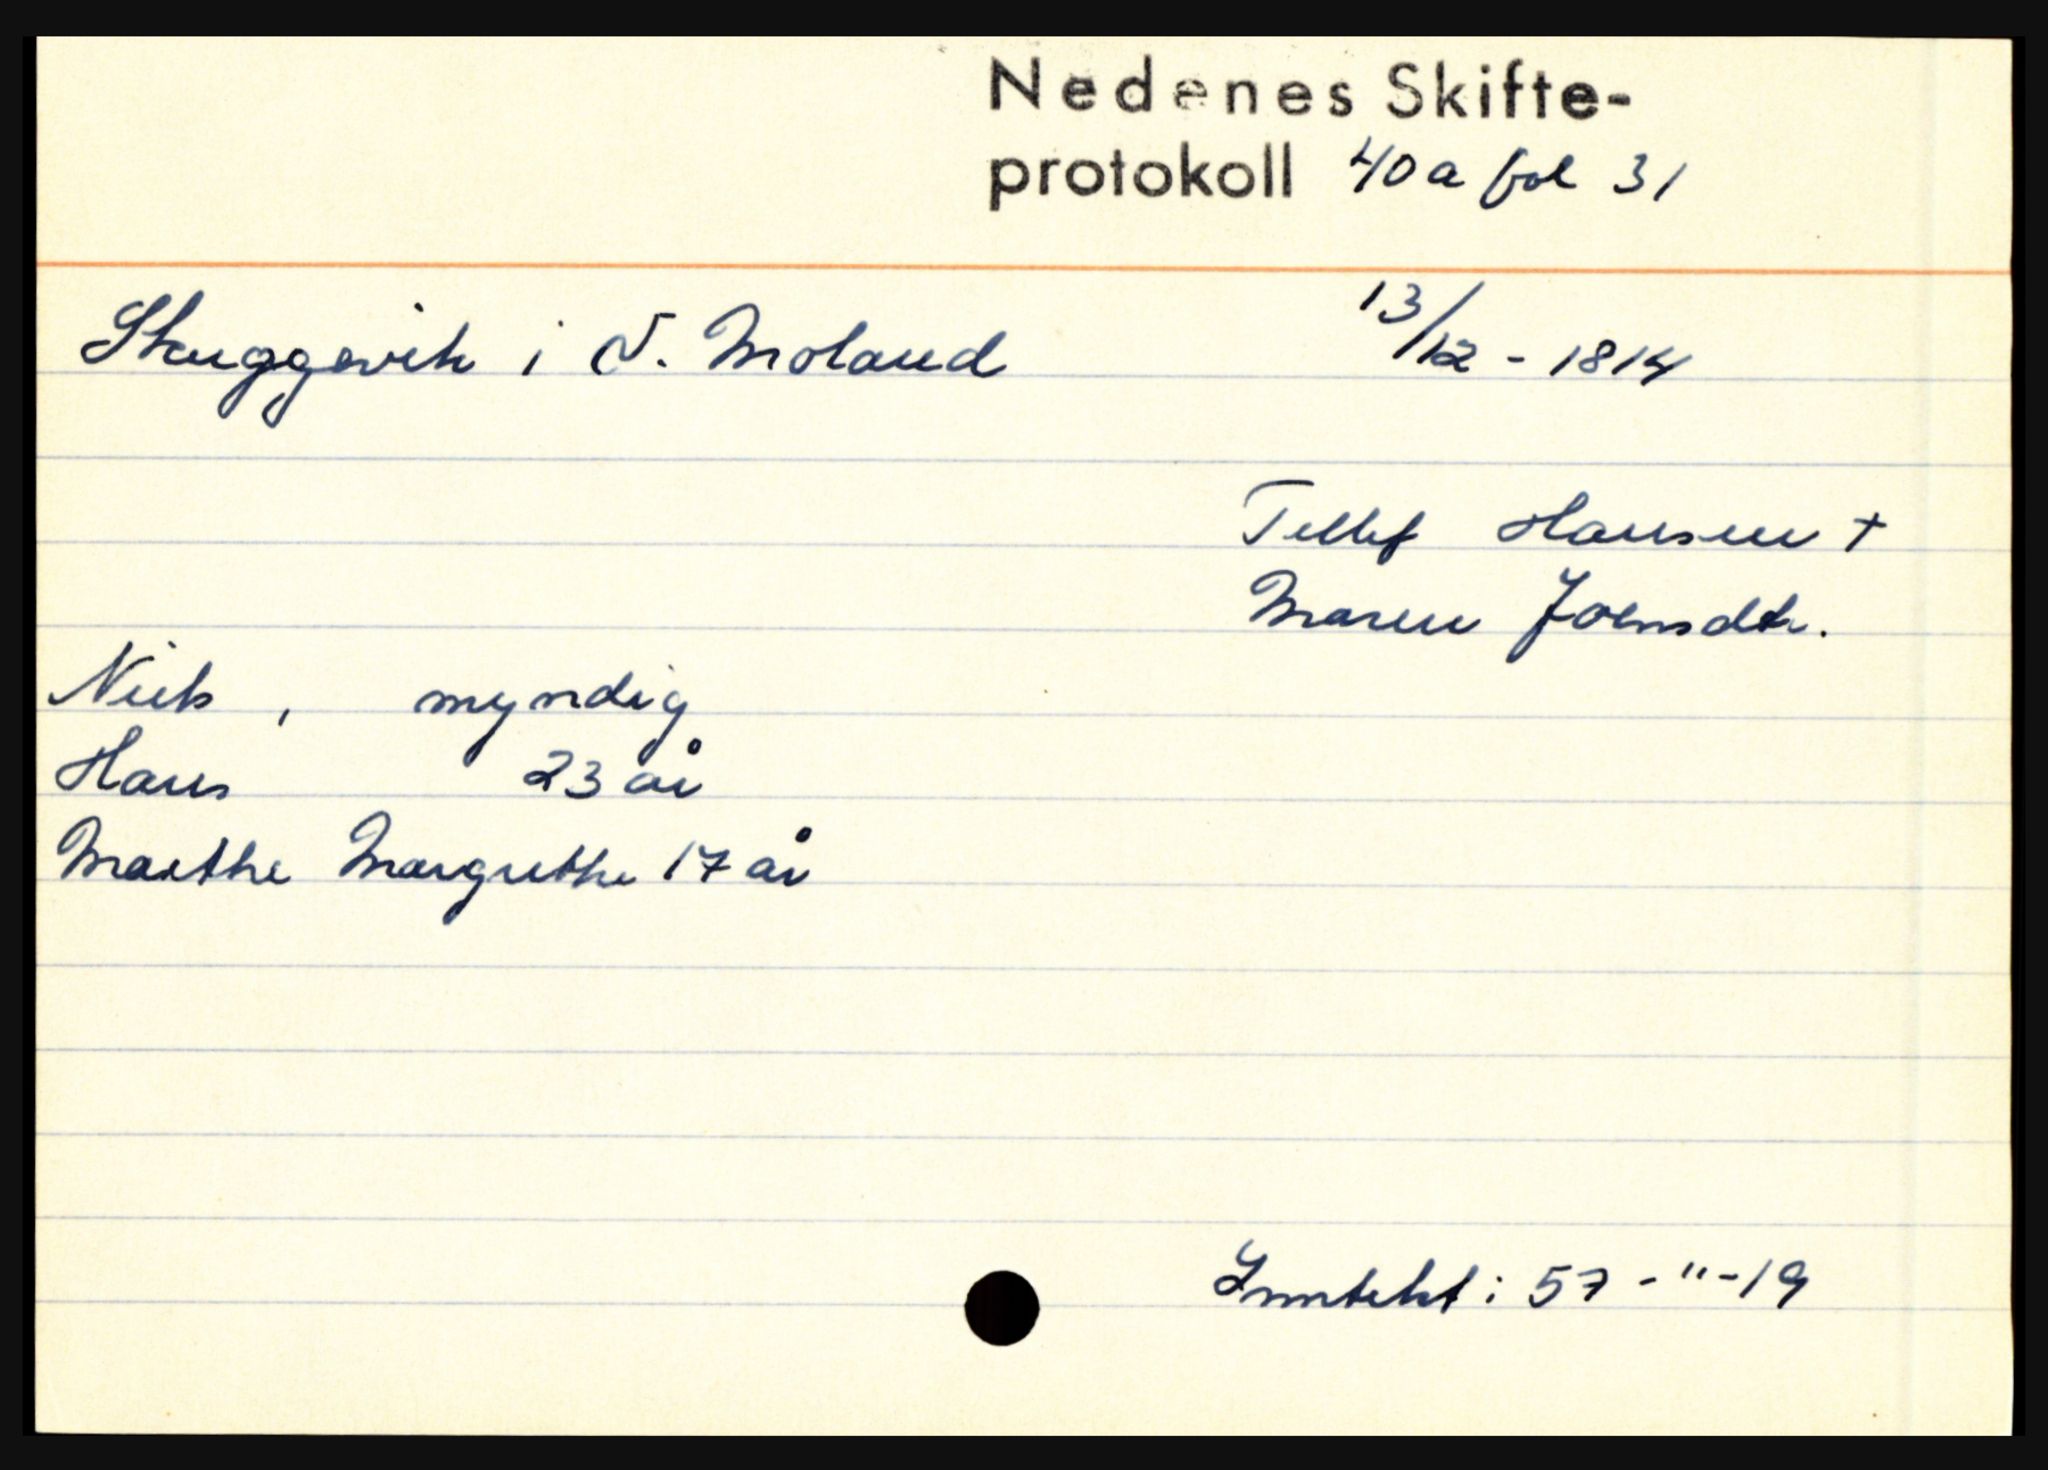 Nedenes Skifte-
protokoll 40a fol 31
Skuggevik i V. Moland 13/12 - 1814
Tellef Hansen +
Maren Joensdtr.
Niels , myndig
Hans 23 år
Marthe Margrethe 17 år
Inntekt : 57 - " - 19